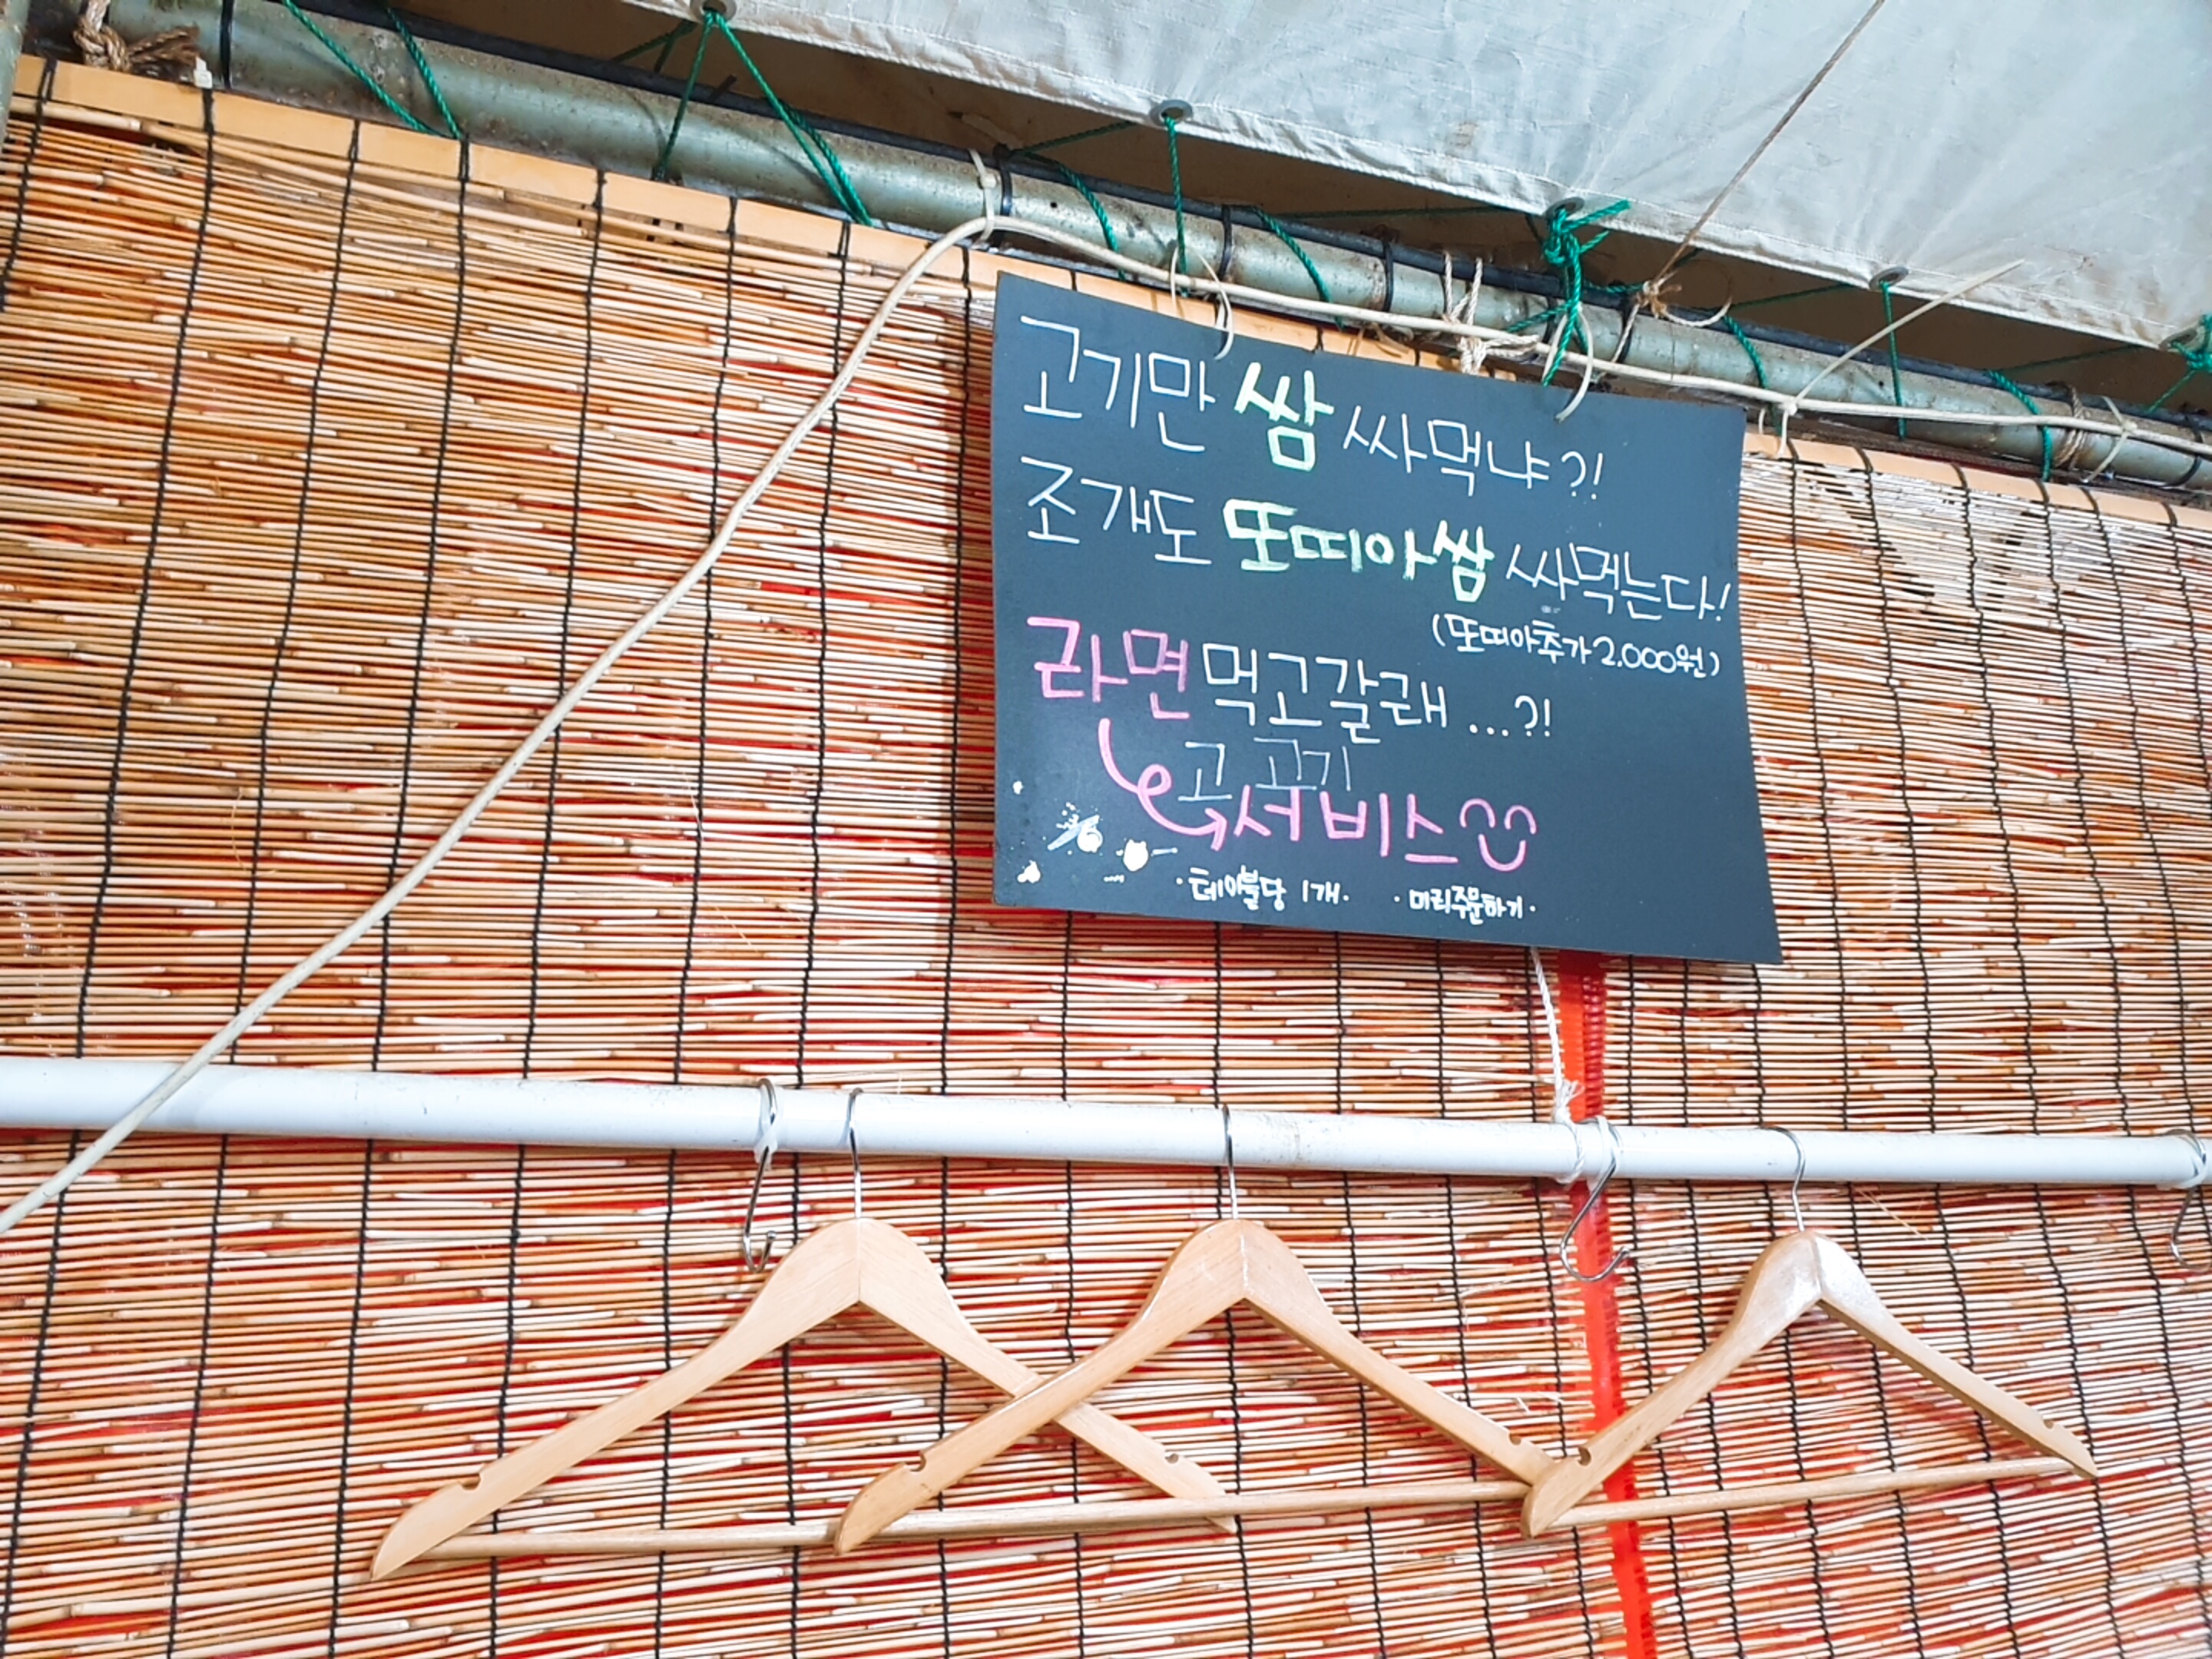 고기만 쌈 싸먹냐?!
조개도 또띠아쌈 싸먹는다!
(또띠아추가 2.000원)
라면 먹고갈래...?!
고 고기
서비스
·테이블당 1개. ·미리주문하기·